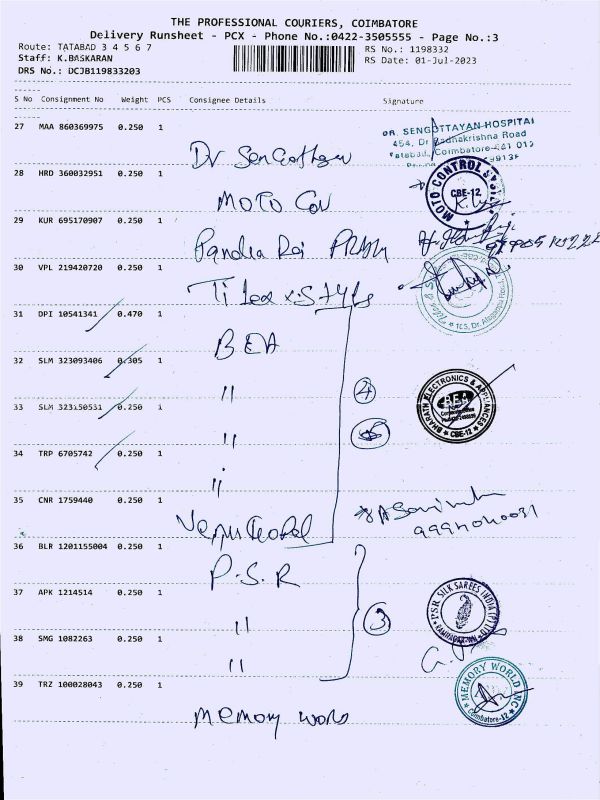 THE PROFESSIONAL COURIERS, COIMBATORE
Delivery Runsheet - PCX - Phone No.:0422-3505555 - Page No.:3
Route: TATABAD 3 4 5 6 7
RS No.: 1198332
Staff: K.BASKARAN
RS Date: 01-Jul-2023
DRS No.: DCJB119833203
S No Consignment No Weight PCS Consignee Details Signature
27 MAA 860369975 0.250 1
DR. SENGOTTAYAN HOSPITAL
454, Dr. Radhakrishna Road
Tatabad, Coimbatore-641 012
28 HRD 360032951 0.250 1
MOTO CON
MOTO CONTROL
CBE-12
29 KUR 695170907 0.250 1
30 VPL 219420720 0.250 1
31 DPI 10541341 0.470 1
BEA
32 SLM 323093406 0.305 1
"
4
BHARATH ELECTRONICS & APPLIANCES
BEA
CBE-12
33 SLM 323150531 0.250 1
"
34 TRP 6705742 0.250 1
"
35 CNR 1759440 0.250 1
Venu Gopal
36 BLR 1201155004 0.250 1
P.S.R
37 APK 1214514 0.250 1
"
3
PSR SILK SAREES INDIA (P) LTD
38 SMG 1082263 0.250 1
"
39 TRZ 100028043 0.250 1
Memory World
MEMORY WORLD INC
Coimbatore-12